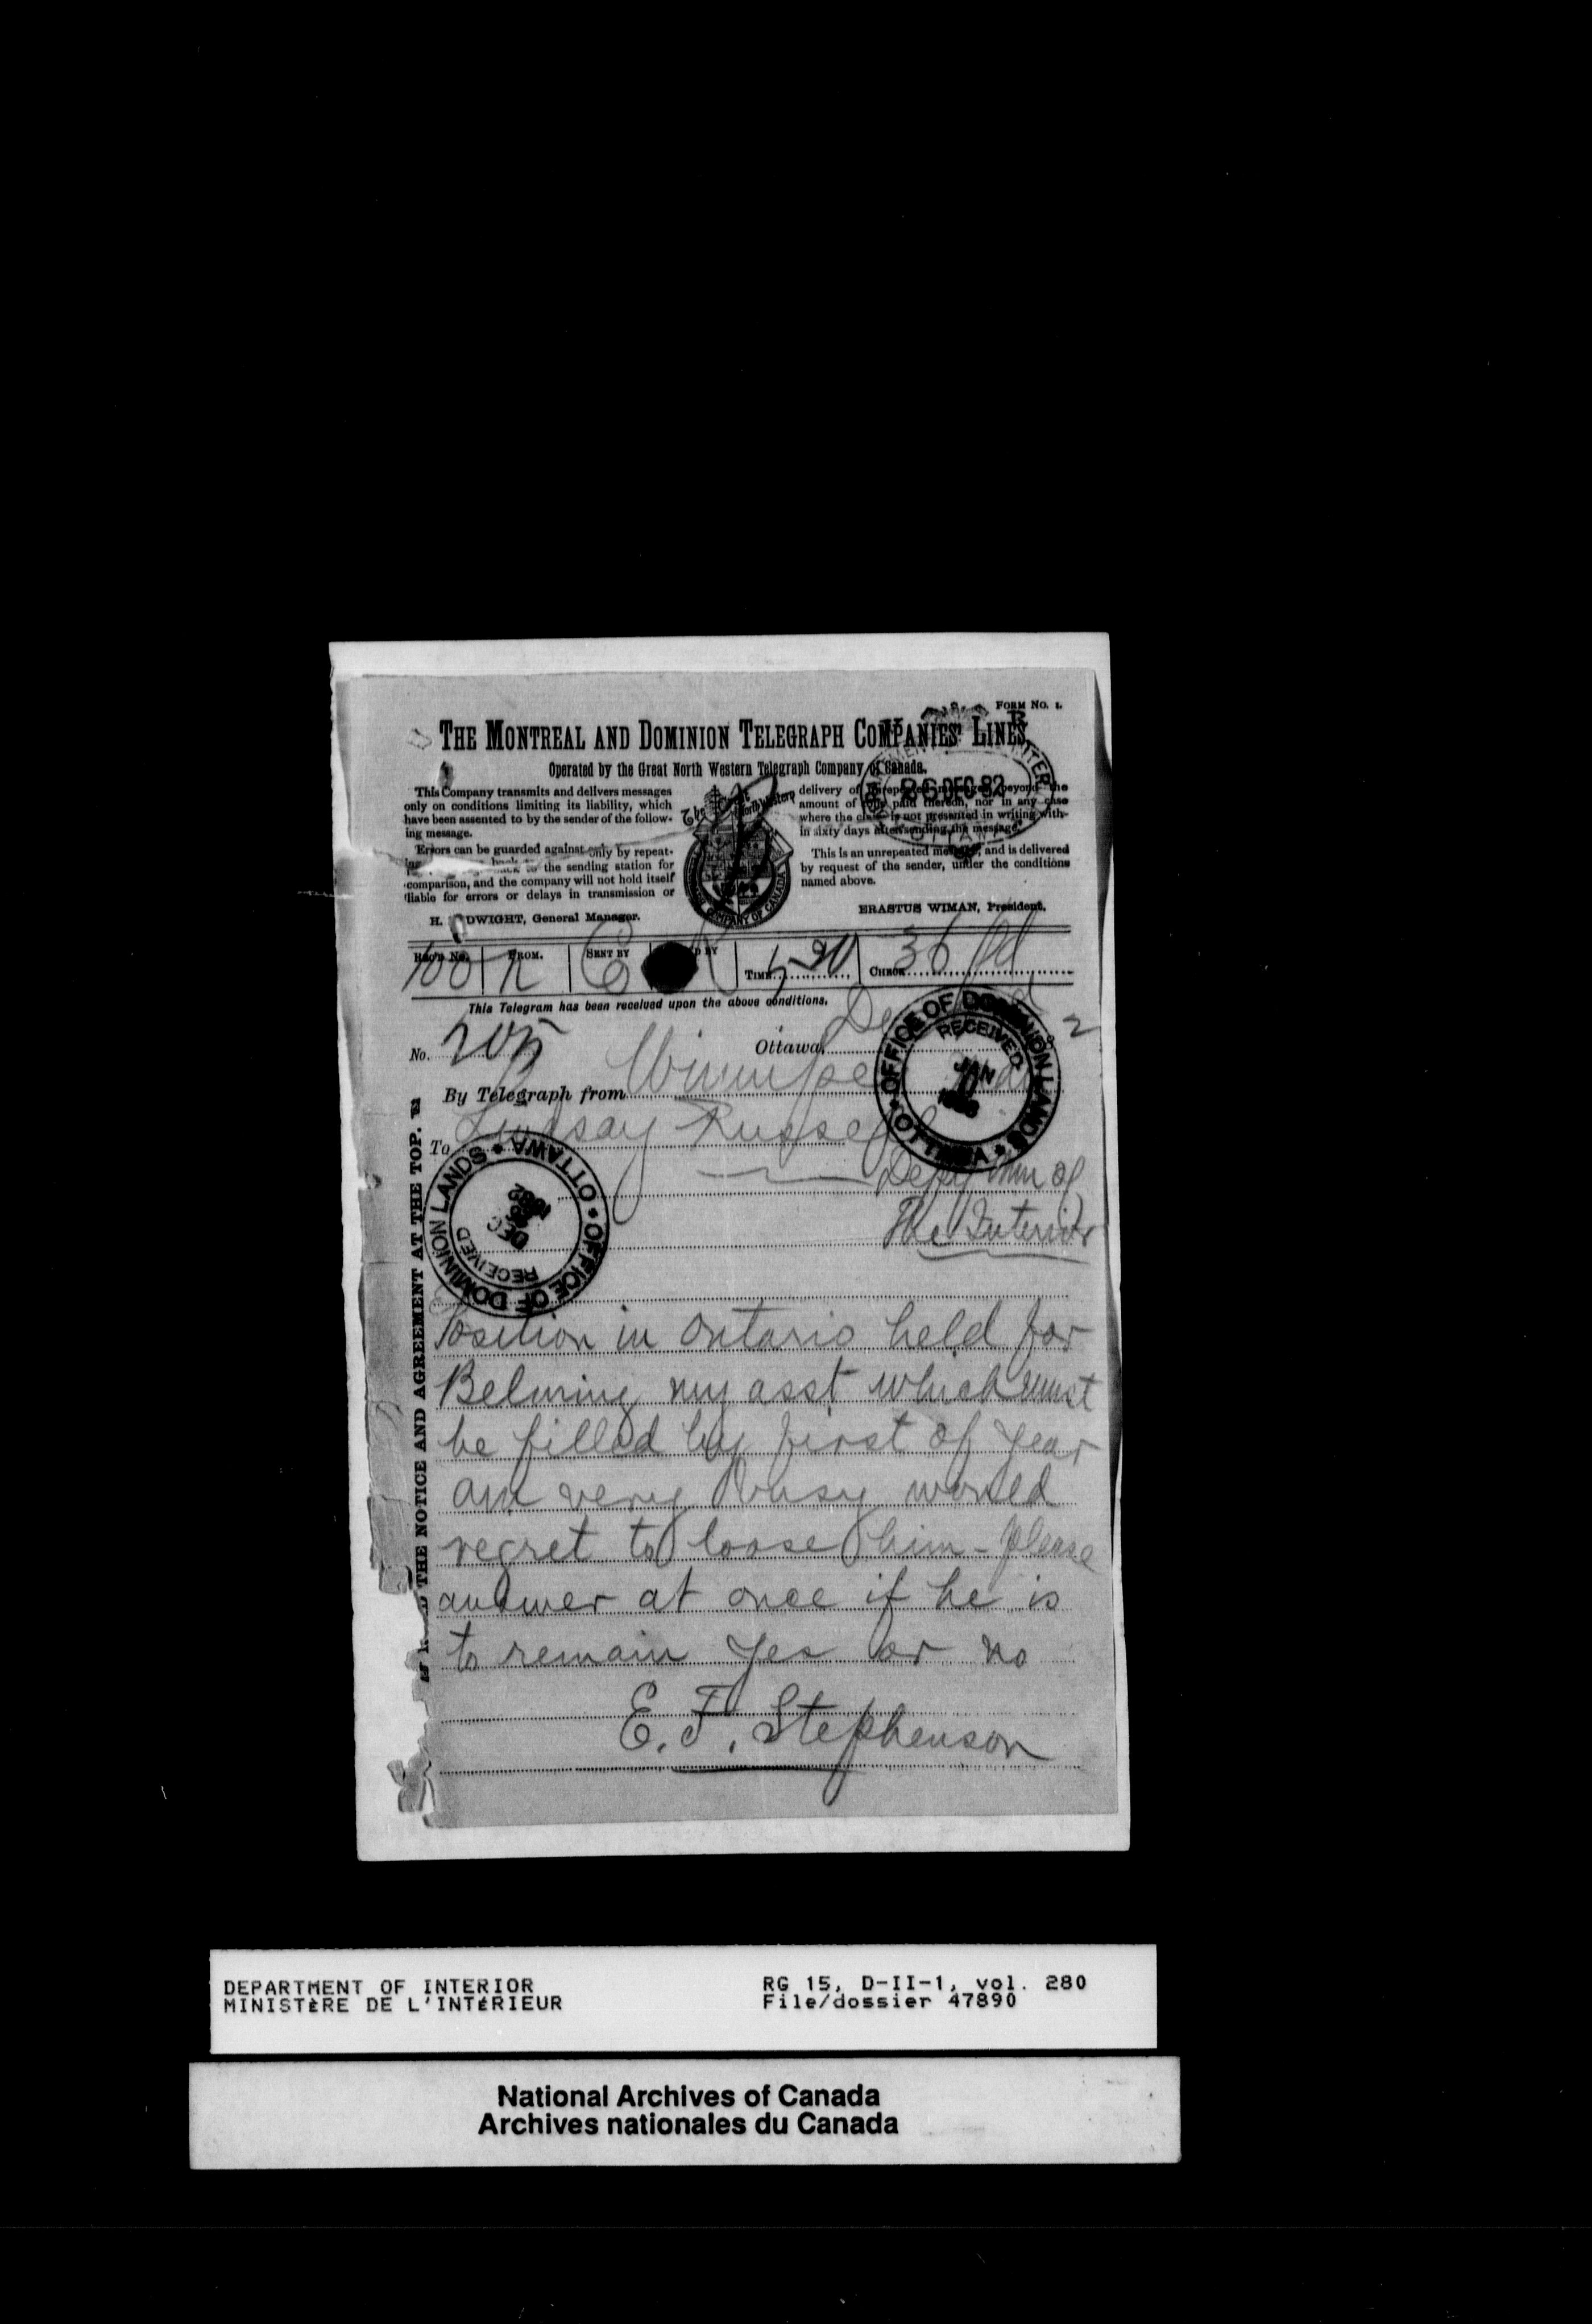 FORM No. 1.
THE MONTREAL AND DOMINION TELEGRAPH COMPANIES' LINES.
Operated by the Great North Western Telegraph Company of Canada.
26 DEC 82
This Company transmits and delivers messages
only on conditions limiting its liability, which
have been assented to by the sender of the follow-
ing message.
Errors can be guarded against only by repeat-
back to the sending station for
comparison, and the company will not hold itself
liable for errors or delays in transmission or
delivery of unrepeated messages, beyond the
amount of tolls paid thereon, nor in any case
where the claim is not presented in writing with-
in sixty days after sending the message.
This is an unrepeated message, and is delivered
by request of the sender, under the conditions
named above.
The Great North Western
COMPANY OF CANADA
H. P. DWIGHT, General Manager.
ERASTUS WIMAN, President.
REC'D No. FROM. SENT BY REC'D BY TIME CHECK
This Telegram has been received upon the above conditions.
No. 205 Ottawa,
By Telegraph from Winnipeg
To Lindsay Russell
Depy Min of
The Interior
OFFICE OF DOMINION LANDS • OTTAWA •
RECEIVED
JAN
OFFICE OF DOMINION LANDS • OTTAWA •
RECEIVED
DEC
1882
THE NOTICE AND AGREEMENT AT THE TOP.
Position in Ontario held for
my asst which must
be filled by first of year
am very busy would
regret to loose him - please
answer at once if he is
to remain yes or no
E. F. Stephenson
DEPARTMENT OF INTERIOR
MINISTÈRE DE L'INTÉRIEUR
RG 15, D-II-1, vol. 280
File/dossier 47890
National Archives of Canada
Archives nationales du Canada